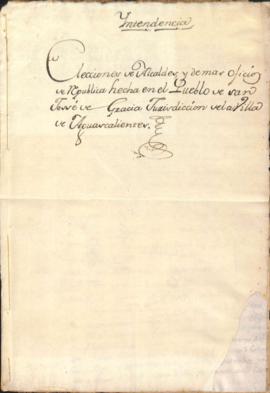 Yntendencia
Elecciones de Alcaldes y demas oficios
de Republica hecha en el Pueblo de san
Josè de Gracia Jurisdiccion de la Villa
de Aguascalientes.